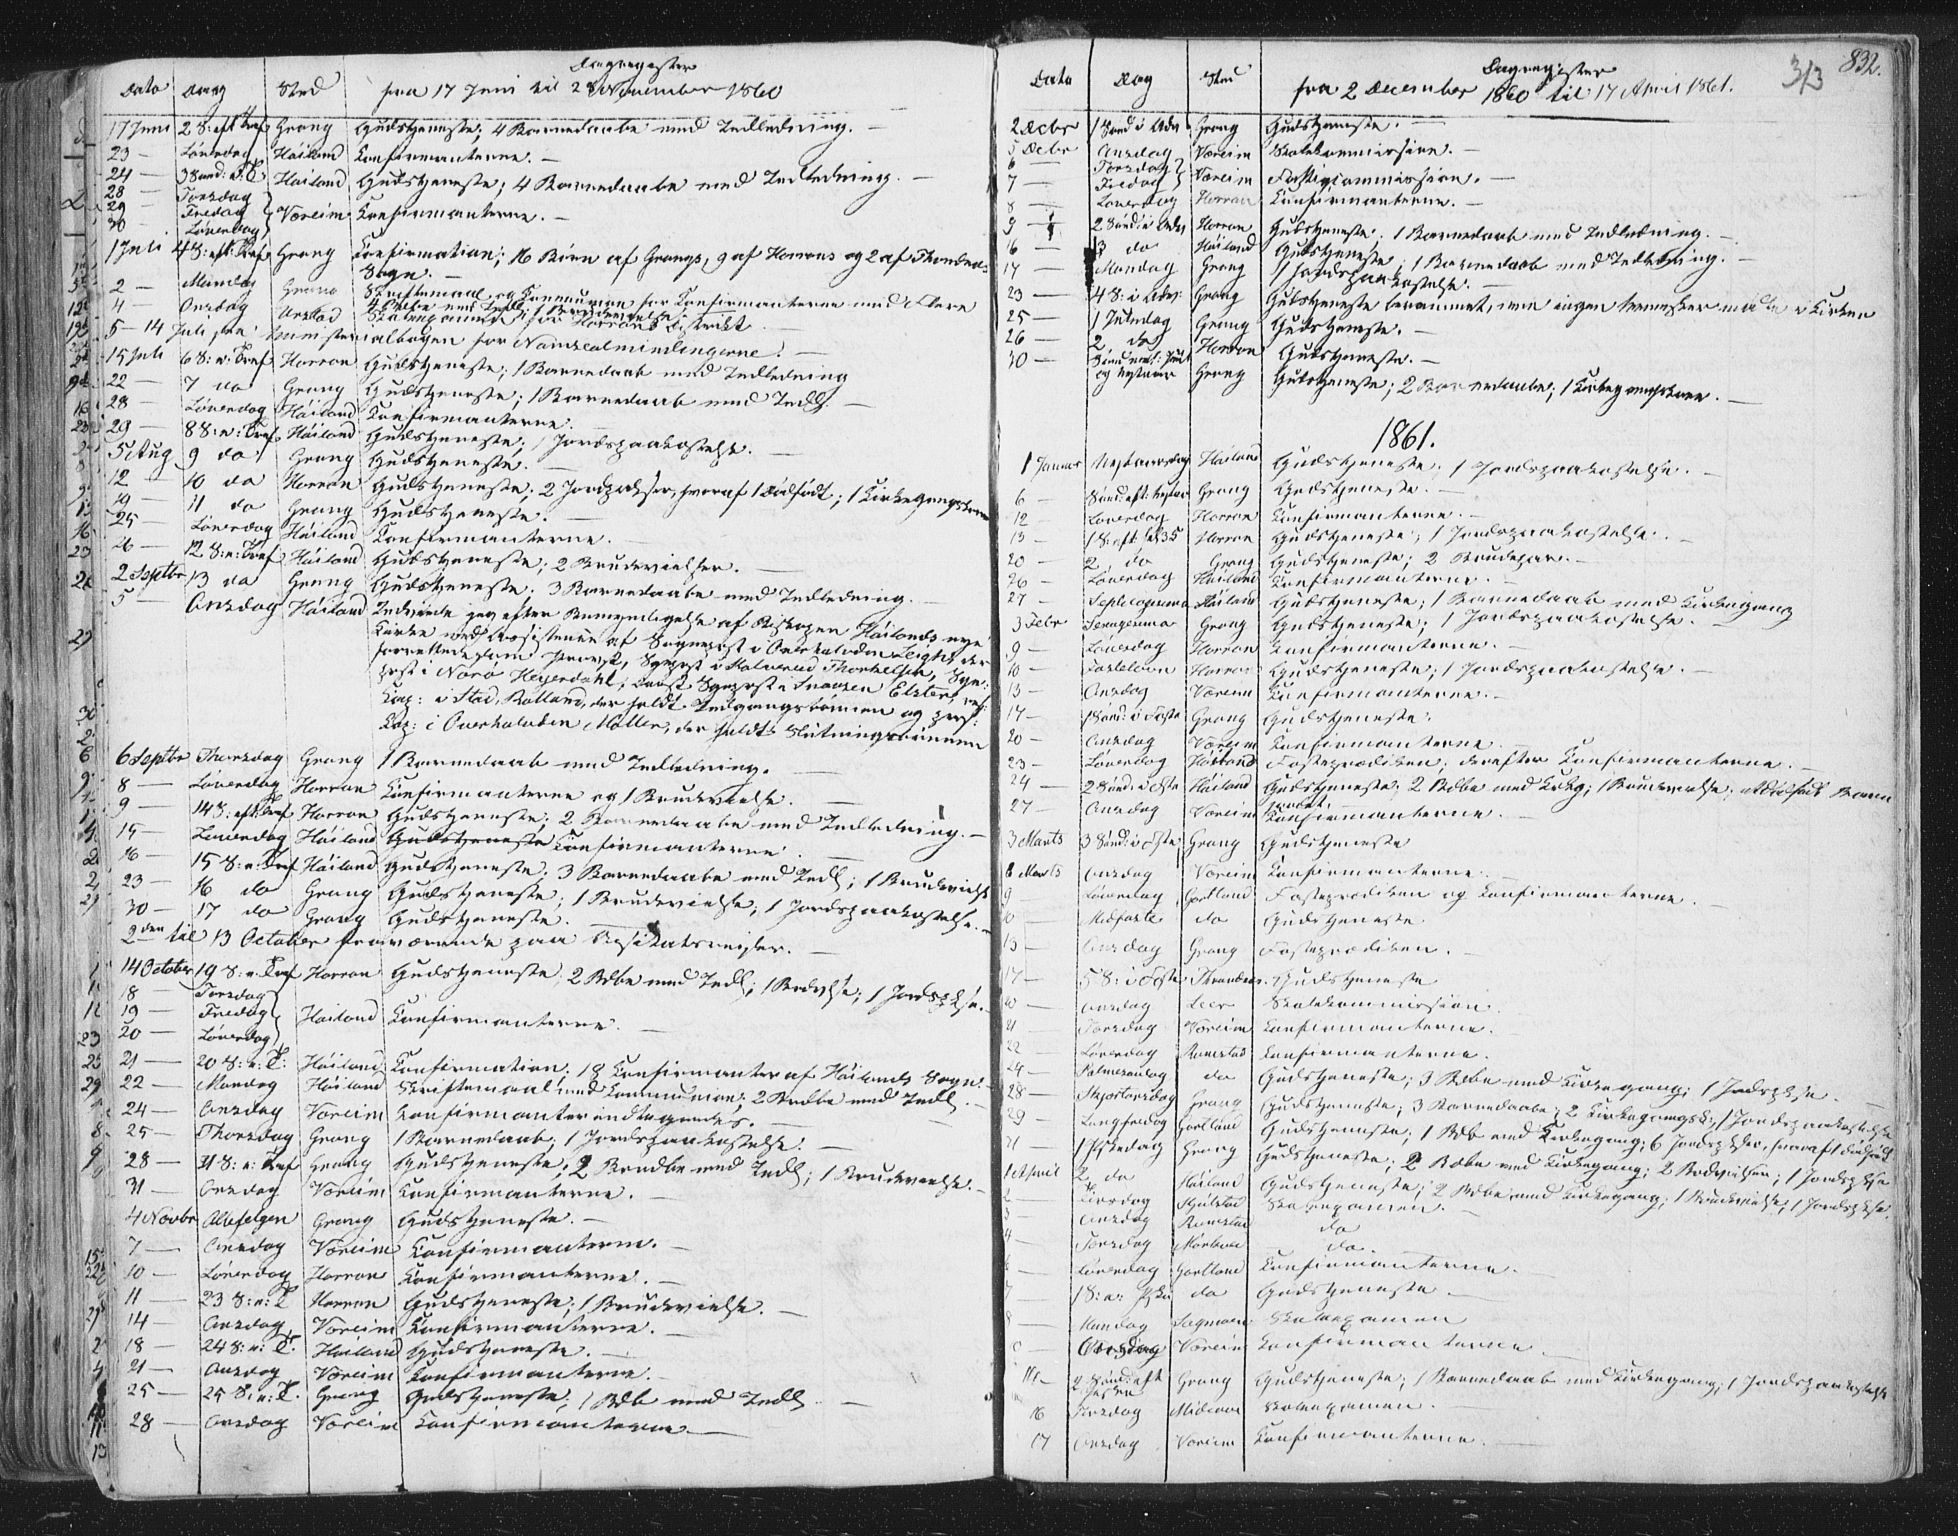 Dagregister
Dato Dag Sted fra 17 Juni til 28 November 1860
17 Juni 2 S: eft Tref Grong Gudstjeneste; 4 Barnedaabe med Indledning. —
23 — Løverdag Høiland Confirmanterne. —
24 — 3 Sønd: e. T Høiland Gudstjeneste; 4 Barnedaabe med Indledning. —
28 — Torsdag
29 — Fredag Vøreim Confirmanterne. —
30 — Løverdag
1 Juli 4 S: eft: Tref Grong Confirmation; 16 Børn af Grongs, 9 af Harrans og 2 af Throndnæs
Sogn. —
2 — Mandag Grong Skriftemaal og Communion for Confirmanterne med flere
4 — Onsdag
5 — 14 Juli Ministerialbogen for Namsealmindingerne. —
15 Juli 6 S: e. Tref Harran Gudstjeneste; 1 Barnedaab med Indledning
22 — 7 do Grong Gudstjeneste; 1 Barnedaab med Indl. —
28 — Løverdag Høiland Confirmanterne.
29 — 8 S: e: Tref Høiland Gudstjeneste; 1 Jordspaakastelse. —
5 Aug 9 do Grong Gudstjeneste. —
12 10 do Harran Gudstjeneste; 2 Jordpkser, hvoraf 1 dødfødt; 1 Kirkegangskone
19 — 11 do Grong Gudstjeneste. —
25 — Løverdag Høiland Confirmanterne. —
26 — 12 S: e: Tref Høiland Gudstjeneste; 2 Brudevielser. —
2 Septbr 13 do Grong Gudstjeneste. 3 Barnedaabe med Indledning. —
5 — Onsdag Høiland Indviede jeg efter Bemyndigelse af Biskopen Høilands nye
Kirke med Assistence af Sognepræst i Overhalden Leigh, der
forrettede som Provst, Sgnprst i Kolvereid Thorkelsen, Sgn:
prst i Nærø Heyerdahl, Sgnprst i Snaasen Elster, res:
Cap: i Stod, Rolland, der holdt Indgangsbønnen og pers:
Cap: i Overhalden Møller, der holdt Slutningsbønnen
6 Septbr Thorsdag Grong 1 Barnedaab med Indledning. —
8 — Løverdag Harran Confirmanterne og 1 Brudevielse. —
9 — 14 S: eft: Tref Harran Gudstjeneste; 2 Barnedaabe med Indledning. —
15 — Løverdag Høiland Gudstjeneste Confirmanterne. —
16 — 15 S: e. Tref Høiland Gudstjeneste; 3 Barnedaabe med Indl; 1 Brudevielse
23 — 16 do Grong Gudstjeneste; 1 Brudevielse; 1 Jordspaakastelse. —
30 — 17 do Grong Gudstjeneste. —
2den til 13 October fraværende paa Visitatsreiser. —
14 October 19 S: e. Tref Harran Gudstjeneste; 2 Bdbe med Indl; 1 Brdvlse; 1 Jordspkse. —
18 — Torsdag
19 — Fredag Høiland Confirmanterne. —
20 — Løverdag
21 — 20 S: e. T: Høiland Confirmation; 18 Confirmanter af Høilands Sogn. —
22 — Mandag Høiland Skriftemaal med Communion; 2 Brdbe med Indl. —
24 — Onsdag Vøreim Confirmanter indtegnedes. —
25 — Thorsdag Grong 1 Barnedaab; 1 Jordspaakastelse. —
28 — 21 S: e: Tref Grong Gudstjeneste; 2 Brndbe med Indl; 1 Brudevielse. —
31 — Onsdag Vøreim Confirmanterne. —
4 Novbr Allehelgen Grong Gudstjeneste. —
7 — Onsdag Vøreim Confirmanterne. —
10 — Løverdag Harran Confirmanterne. —
11 — 23 S: e: T Harran Gudstjeneste; 1 Brudevielse. —
14 — Onsdag Vøreim Confirmanterne. —
18 — 24 S: e: T. Høiland Gudstjeneste. —
21 — Onsdag Vøreim Confirmanterne. —
25 — 25 S: e: T. Grong Gudstjeneste; 1 Bdb med Indl. —
28 — Onsdag Vøreim Confirmanterne. —
832.
313
Dagregister
Dato Dag Sted fra 2 December 1860 til 17 April 1861.
2 Decbr 1 Sønd i Adv Grong Gudstjeneste. —
5 Decbr Onsdag Vøreim Skolekommission. —
6 — Torsdag
7 — Fredag Vøreim Fattigcommission. —
8 — Løverdag Harran Confirmanterne. —
9 — 2 Sønd: i Adv Harran Gudstjeneste; 1 Barnedaab med Indledning. —
16 — 3 do Høiland Gudstjeneste; 1 Barnedaab med Indledning. —
17 — Mandag Grong 1 Jordspaakastelse. —
23 — 4 S: i Adv: Grong Gudstjeneste berammet, men ingen Mennesker mødte i Kirken
25 — 1 Juledag Grong Gudstjeneste. —
26 — 2 do Harran Gudstjeneste. —
30 — Sønd mel: Juul
og Nytaar Grong Gudstjeneste; 2 Barnedaabe; 1 Kirkegangskone. —
1861.
1 Januar Nytaarsdag Høiland Gudstjeneste; 1 Jordspaakastelse. —
6 — Sønd: eft: Nytaar Grong Gudstjeneste. —
12 — Løverdag Harran Confirmanterne. —
13 — 1 S: eft: Harran Gudstjeneste; 1 Jordspaakastelse. —
20 — 2 do Grong Gudstjeneste; 2 Brudepar. —
26 — Løverdag Høiland Confirmanterne. —
27 — Septuagesima Høiland Gudstjeneste; 1 Barnedaab med Kirkegang
3 Febr Sexagesima Grong Gudstjeneste; 1 Jordspaakastelse. —
9 — Løverdag Harran Confirmanterne. —
10 — Fastelavn Harran Gudstjeneste; 1 Jordspaakastelse. —
13 — Onsdag Vøreim Confirmanterne. —
17 — 1 Sønd: i Faste Grong Gudstjeneste.
20 — Onsdag Vøreim Confirmanterne. —
23 — Løverdag Høiland Fasteprædiken; derefter Confirmanterne. —
24 — 2 Sønd: i Faste Høiland Gudstjeneste; 2 Bdbe med Kirkeg; 1 Brudevielse; dødfødt Barn
27 — Onsdag Vøreim Confirmanterne. —
3 Marts 3 Sønd: i Faste Grong Gudstjeneste
6 Marts Onsdag Vøreim Confirmanterne. —
9 Løverdag Gartland Fasteprædiken og Confirmanterne. —
10 — Midfaste do Gudstjeneste
13 — Onsdag Grong Fasteprædiken. —
17 — 5 S: i Faste Throndnæs Gudstjeneste
20 — Onsdag Leer Skolekommission.
21 Torsdag Vøreim Confirmanterne. —
22 — Løverdag Romstad Confirmanterne. —
24 — Palmesøndag do Gudstjeneste; 3 Bdbe med Kirkegang; 1 Jordspkse. —
28 — Skjærtorsdag Grong Gudstjeneste; 3 Barnedaabe; 2 Kirkegangsk; 1 Jordspaakastelse
29 Langfredag Gartland Gudstjeneste; 1 Bdb med Kirkegang; 6 Jordspkser, hvoraf 1 dødfødt
31 1 Paaskedag Grong Gudstjeneste; 2 Bdbe med Kirkegang; 2 Brdvielser; 1 Jordspkse
1 April 2 do Høiland Gudstjeneste; 2 Bdbe med Kirkegang; 1 Brudevielse; 1 Jordspkse.
2 — Tirsdag Skoleexamen. —
3 — Onsdag Romstad do
4 — Torsdag do. —
6 — Løverdag Gartland Confirmanterne. —
7 1 S: e: Pske do Gudstjeneste. —
8 — Mandag Skoleexamen
Onsdag Vøreim Confirmanterne —
14 — 2 Sønd eft
Paaske Grong Gudstjeneste; 1 Barnedaab med Kirkegang; 1 Jordspaakastelse
16 Tirsdag Skoleexamen. —
17 Onsdag Vøreim Confirmanterne. —